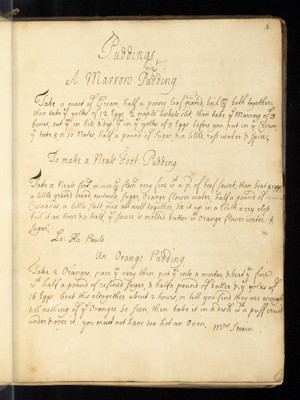 3
Puddings
A Marrow Pudding
Take a quart of Cream half a penny loaf grated, boil y^e both together
then take y^e yolks of 12 Eggs 2 naple biskets slit, then take y^e Marrow of 3
bones, cut y^m in bits & dip y^m in y^e yolks of 2 Eggs before you put in y^e Cream
take 8 or 10 Dates half a pound of Sugar, & a little rose water & spice.
To make a Neats Foot Pudding
Take a Neats foot, mince y^e flesh very fine, a p^d. of beef sewet, then beat 8 eggs
a little grated bread, nutmeg, Sugar, Orange flower water, half a pound of
Currance, a little Salt mix all well together, tie it up in a Cloth very close
let it an hour & a half y^e sauce is melted butter w^th Orange flower water &
Sugar.
La: Ha: Pauls
An Orange Pudding
Take 2 Oranges, pare y^m very thin put y^m into a mortar & beat y^m fine
half a pound of refined Sugar, & half a pound of butter, & y^e yolks of
16 Eggs beat this altogether about 2 hours, or till you find they are enough
till nothing of y^e Oranges be seen then bake it in a dish w^th a puff crust
under & over it, you must not have too hot an Oven. M^rs Strain